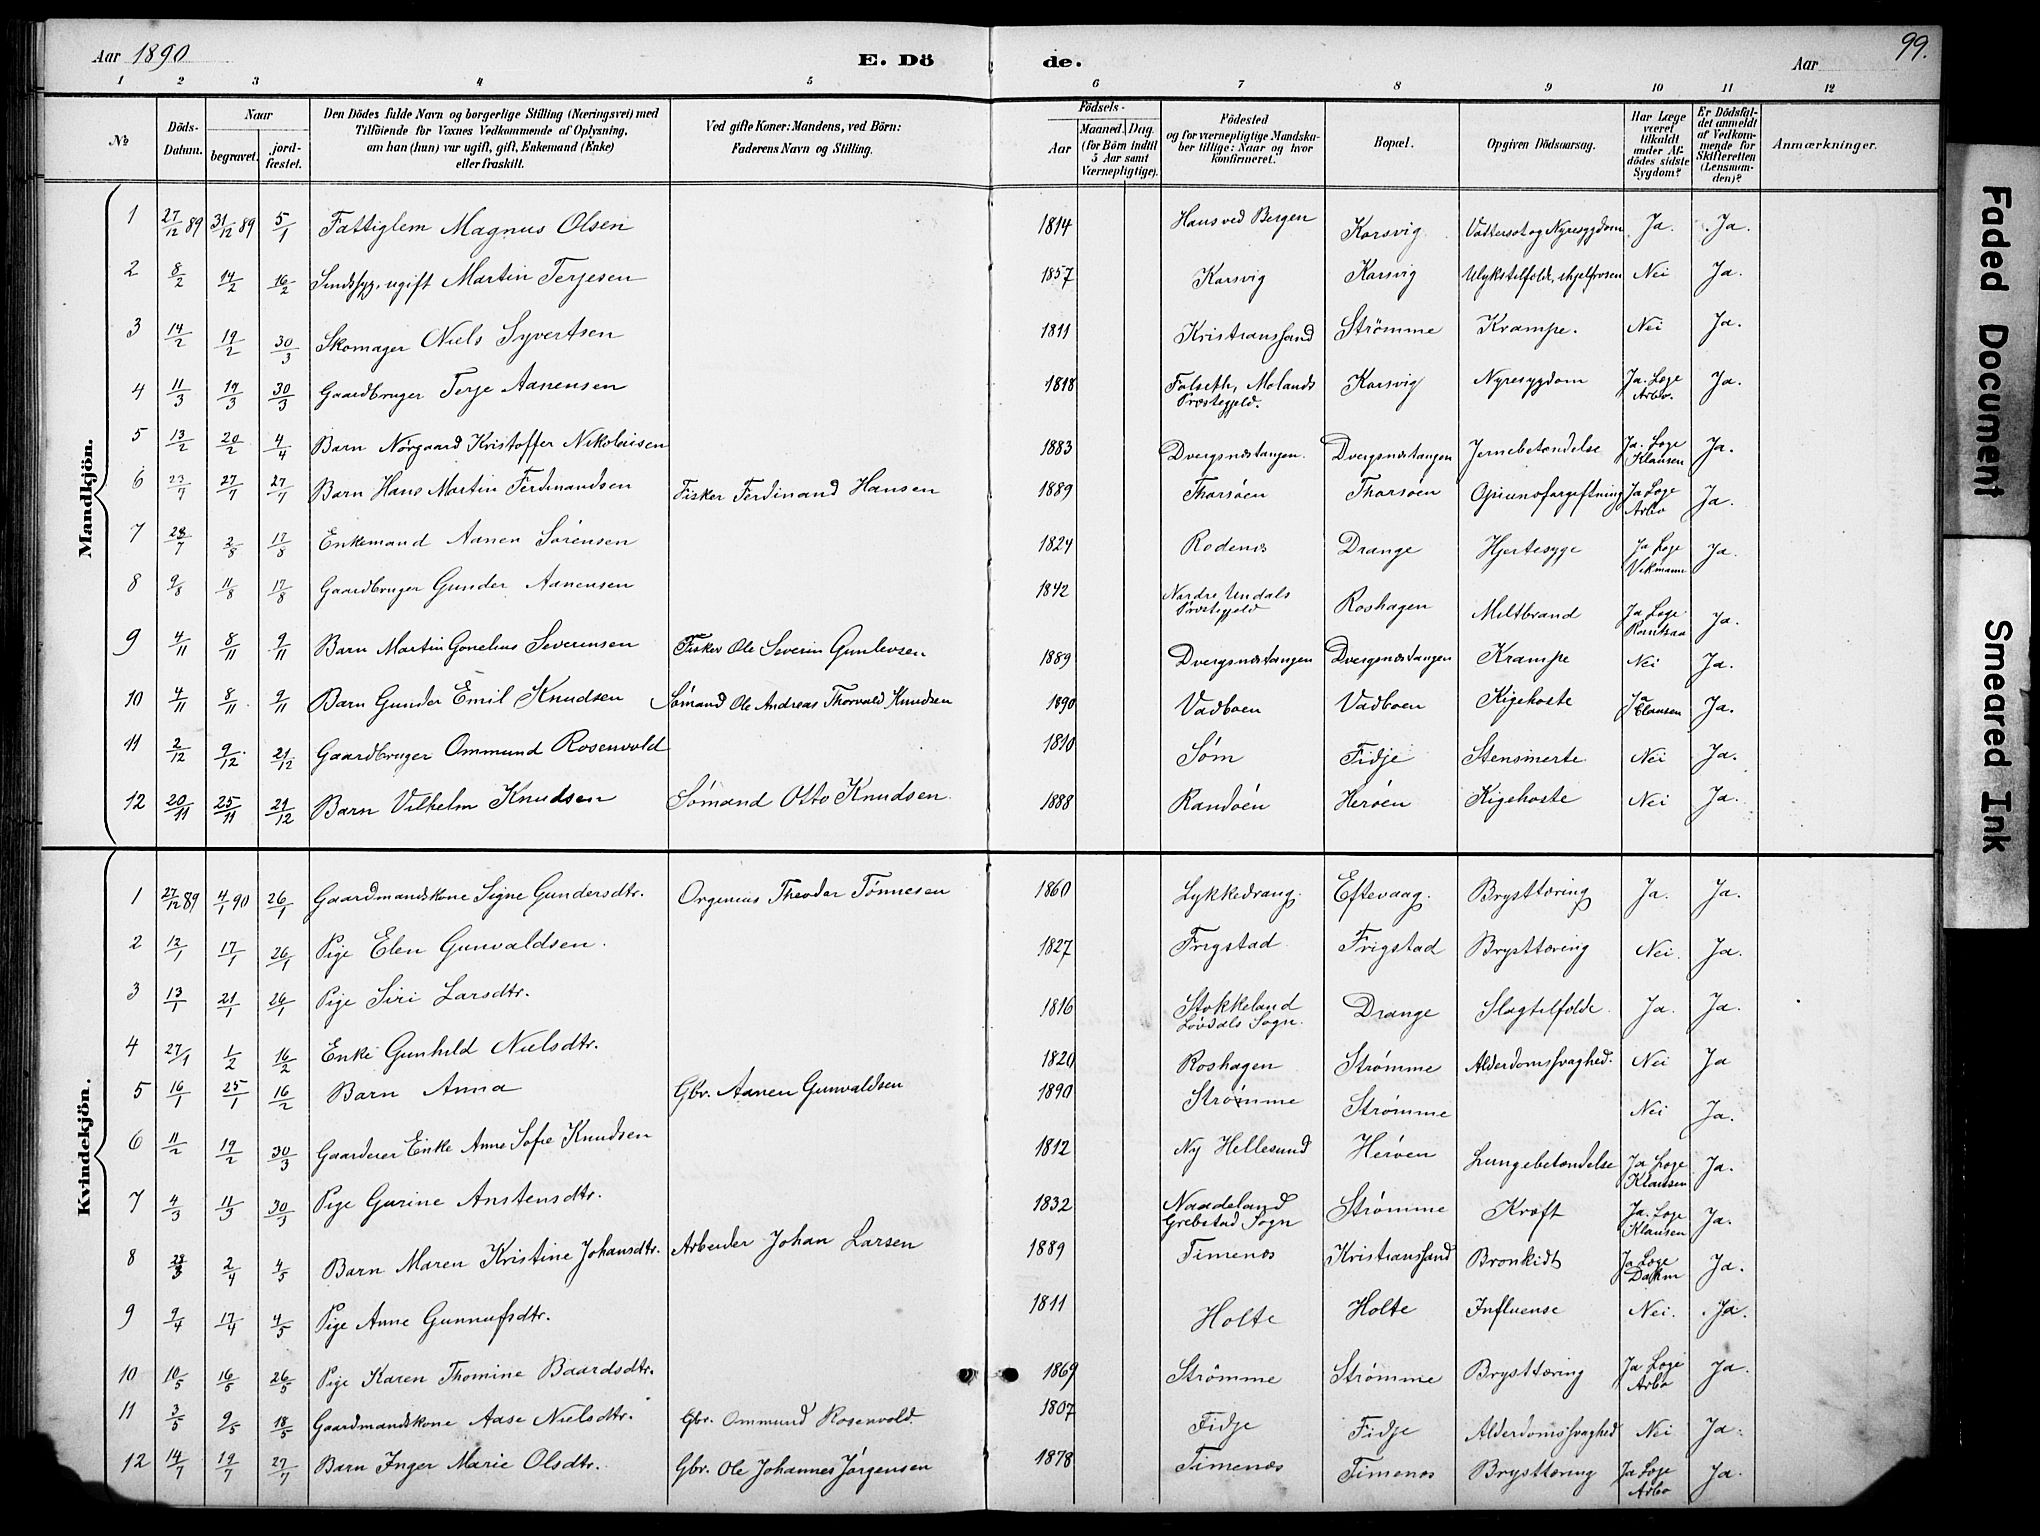 Aar 1890 E. Dö de. Aar 99.
1 2 3 4 5 6 7 8 9 10 11 12
№
Döds-Datum.
Naar
begravet.
jord-fæstet.
Den Dödes fulde Navn og borgerlige Stilling (Næringsvei) med
Tilföiende for Voxnes Vedkommende af Oplysning,
om han (hun) var ugift, gift, Enkemand (Enke)
eller fraskilt.
Ved gifte Koner: Mandens, ved Börn:
Faderens Navn og Stilling.
Födsels-
Aar
Maaned. Dag.
(for Börn indtil
5 Aar samt
Værnepligtige).
Födested
og for værnepligtige Mandska-
ber tillige: Naar og hvor
konfirmeret.
Bopæl.
Opgiven Dödsaarsag.
Har Læge
været
tilkaldt
under Af-
dödes sidste
Sygdom?
Er Dödsfal-
det anmeldt
af Vedkom-
mende for
Skifteretten
(Lensman-
den)?
Anmærkninger.
Mandkjön.
1 27/12 89 31/12 89 5/1 Fattiglem Magnus Olsen 1814 Hans ved Bergen Korsvig Vattersot og Nyresygdom Ja. Ja.
2 8/2 14/2 16/2 Sindssyg, ugift Martin Terjesen 1857 Korsvig Korsvig Ulykstilfælde, ihjelfrosen Nei Ja.
3 14/2 19/2 30/3 Skomager Niels Syvertsen 1811 Kristianssand Strömme Krampe. Nei Ja.
4 11/3 19/3 30/3 Gaardbruger Terje Aanensen 1818 Falseth, Molands Præstegjeld. Korsvig Nyresygdom Ja. Læge Arbo. Ja.
5 13/2 20/2 4/4 Barn Nørgaard Kristoffer Nikolaisen 1883 Dvergsnæstangen. Dvergsnæstangen Jernebetændelse Ja. Læge Klausen Ja.
6 23/7 27/7 27/7 Barn Hans Martin Ferdinandsen Fisker Ferdinand Hansen 1889 Tharsøen Tharsøen Opiumsforgiftning Ja Læge Arbo Ja.
7 28/7 2/8 17/8 Enkemand Aanen Sørensen 1824 Rodenes Drange Hjertesyge Ja Læge Vikmann Ja.
8 9/8 11/8 17/8 Gaardbruger Gunder Aanensen 1842 Nordre Undals Præstegjeld Roshagen Miltbrand Ja Læge Ja.
9 4/11 8/11 9/11 Barn Martin Gonelius Severensen Fisker Ole Severin Gunlevsen 1889 Dvergsnæstangen Dvergsnæstangen Krampe Nei Ja.
10 4/11 8/11 9/11 Barn Gunder Emil Knudsen Sømand Ole Andreas Thorvald Knudsen 1890 Vadboen Vadboen Kigehoste Ja Clausen Ja.
11 2/12 9/12 21/12 Gaardbruger Ommund Rosenvold 1810 Søm Fidje Stensmerte Nei Ja.
12 20/11 25/11 21/12 Barn Vilhelm Knudsen Sømand Otto Knudsen 1888 Randøen Herøen Kigehoste Nei Ja.
Kvindekjön.
1 27/12 89 4/1 90 26/1 Gaardmandskone Signe Gundersdtr. Orgenius Theodor Tønnesen 1860 Lykkedrang. Eftevaag. Brysttæring Ja. Ja.
2 12/1 17/1 26/1 Pige Elen Gunvaldsen. 1827 Frigstad Frigstad Brysttæring Nei Ja.
3 13/1 21/1 26/1 Pige Siri Larsdtr. 1816 Stokkeland Løvdals Sogn. Drange Slagtilfælde. Ja. Ja.
4 27/1 1/2 16/2 Enke Gunhild Nielsdtr. 1820 Roshagen Strømme Alderdomssvaghed. Nei Ja
5 16/1 25/1 16/2 Barn Anna Gbr. Aanen Gunvaldsen 1890 Strømme Strømme Nei Ja.
6 11/2 19/2 30/3 Gaardeier Enke Anne Sofie Knudsen 1812 Ny Hellesund Herøen Lungebetændelse Ja Læge Klausen Ja.
7 4/3 11/3 30/3 Pige Gurine Anstensdtr. 1832 Naadeland Grebstad Sogn Strømme Kræft Ja. Læge Klausen Ja.
8 28/3 2/4 4/5 Barn Maren Kristine Johansdtr. Arbeider Johan Larsen 1889 Timenes Kristianssand Bronkidt Ja Læge Ja.
9 9/4 17/4 4/5 Pige Anne Gunnufsdtr. 1811 Holte Holte Influense Nei. Ja
10 10/5 16/5 26/5 Pige Karen Thomine Baardsdtr. 1869 Strömme Strömme Brysttæring Ja Læge Arbo Ja.
11 3/5 9/5 18/5 Gaardmandskone Aase Nielsdtr. Gbr. Ommund Rosenvold. 1807 Fidje Fidje Alderdomssvaghed Nei Ja.
12 14/7 19/7 27/7 Barn Inger Marie Olsdtr. Gbr. Ole Johannes Jørgensen 1878 Timenes Timenes Brysttæring Ja Læge Arbo Ja.
Faded Document
Smeared Ink